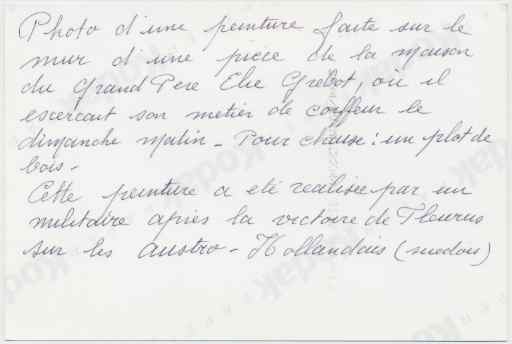 Photo d'une peinture faite sur le
mur d'une pièce de la maison
du Grand Père Elie Grébot, où il
exercait son metier de coiffeur le
dimanche matin - Pour chaise : un plot de
bois -
Cette peinture a été realisée par un
militaire après la victoire de Fleurus
sur les Austro-Hollandais (suedois)
Kodak